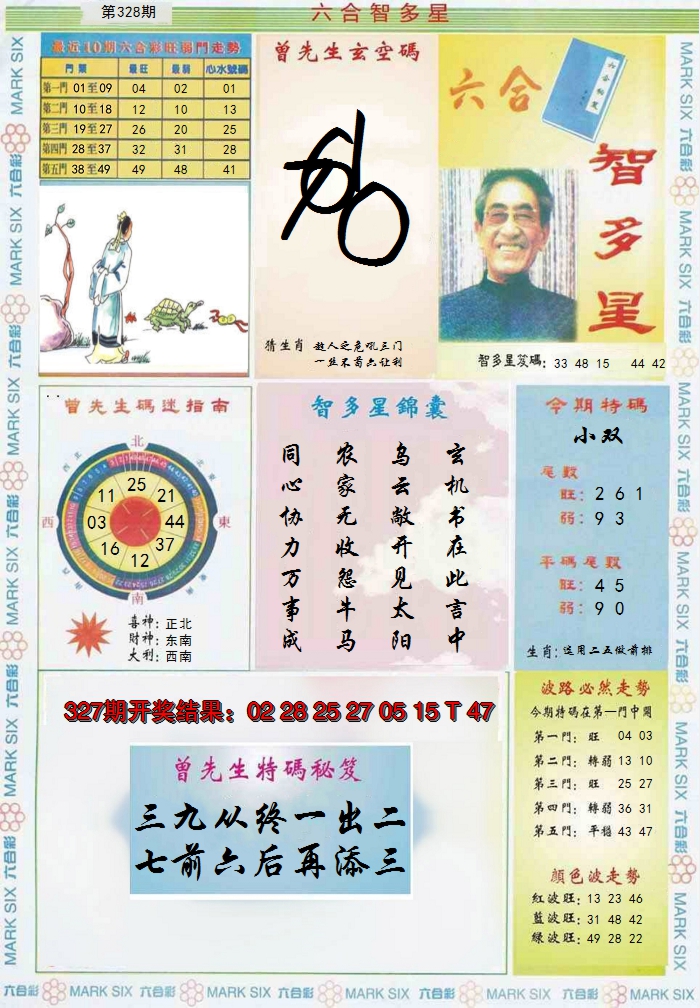 第328期
六合智多星
最近10期六合彩旺弱門走勢
門票 最旺 最弱 心水號碼
第一門 01至09 04 02 01
第二門 10至18 12 10 13
第三門 19至27 26 20 25
第四門 28至37 32 31 28
第五門 38至49 49 48 41
曾先生玄空碼
猜生肖 敌人之危吼三门
一丝不苟六让利
六合
智多星
智多星笈碼: 33 48 15 44 42
曾先生碼迷指南
北
西
東
南
25
21
44
37
12
16
03
11
喜神: 正北
財神: 东南
大利: 西南
智多星錦囊
玄机书在此言中
乌云敞开见太阳
农家无收怨牛马
同心协力万事成
今期特碼
小双
尾数
旺: 2 6 1
弱: 9 3
平碼尾数
旺: 4 5
弱: 9 0
生肖: 运用二五做前排
327期开奖结果: 02 28 25 27 05 15 T 47
曾先生特碼秘笈
三九从终一出二
七前六后再添三
波路必然走勢
今期特碼在第一門中開
第一門: 旺 04 03
第二門: 轉弱 13 10
第三門: 旺 25 27
第四門: 轉弱 36 31
第五門: 平穩 43 47
顏色波走勢
紅波旺: 13 23 46
藍波旺: 31 48 42
綠波旺: 49 28 22
六合彩 MARK SIX